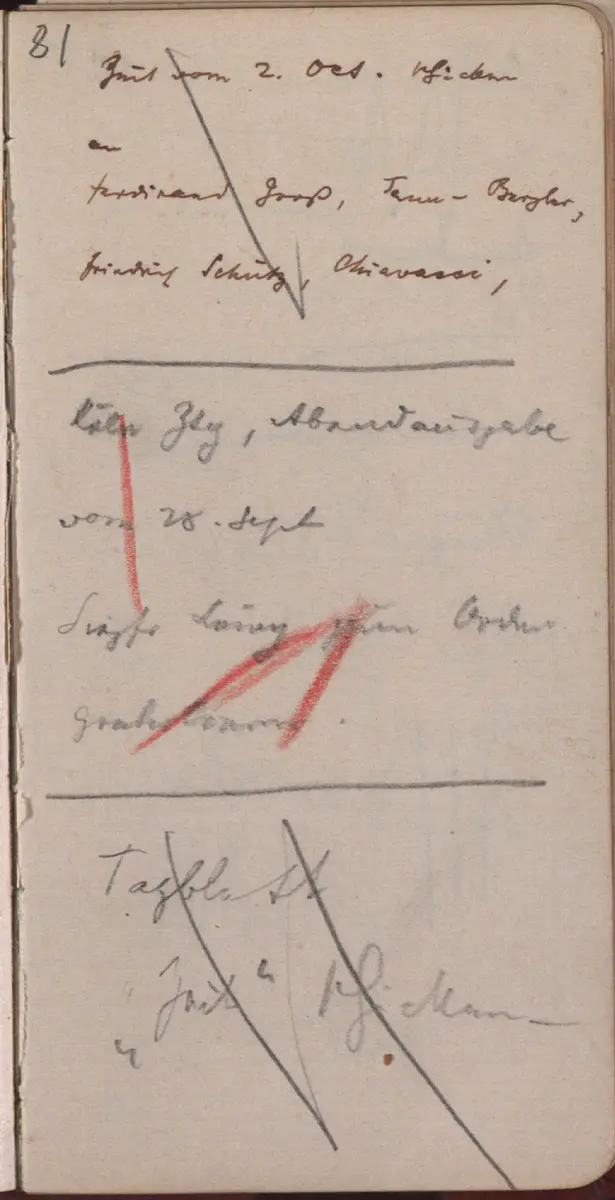 81
Zeit vom 2. Oct. schicken
an
Ferdinand Groß, Tann-Bergler,
Friedrich Schütz, Chiavacci,
Köln Ztg, Abendausgabe
vom 28. Sept
zum Orden
gratuliren.
Tagblatt
"Zeit" schicken